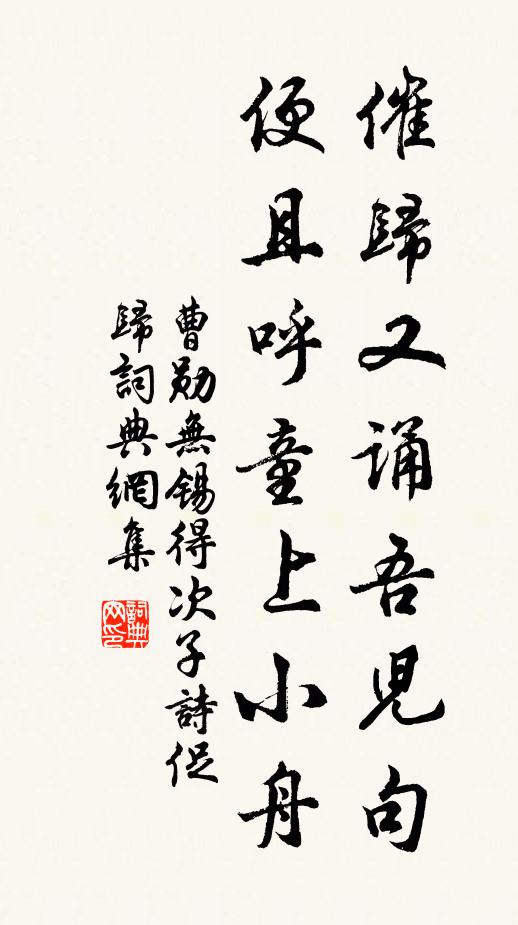 催歸又誦吾児句
便且呼童上小舟
曹勛無錫得次子詩促
歸詞典網集
詞典网印